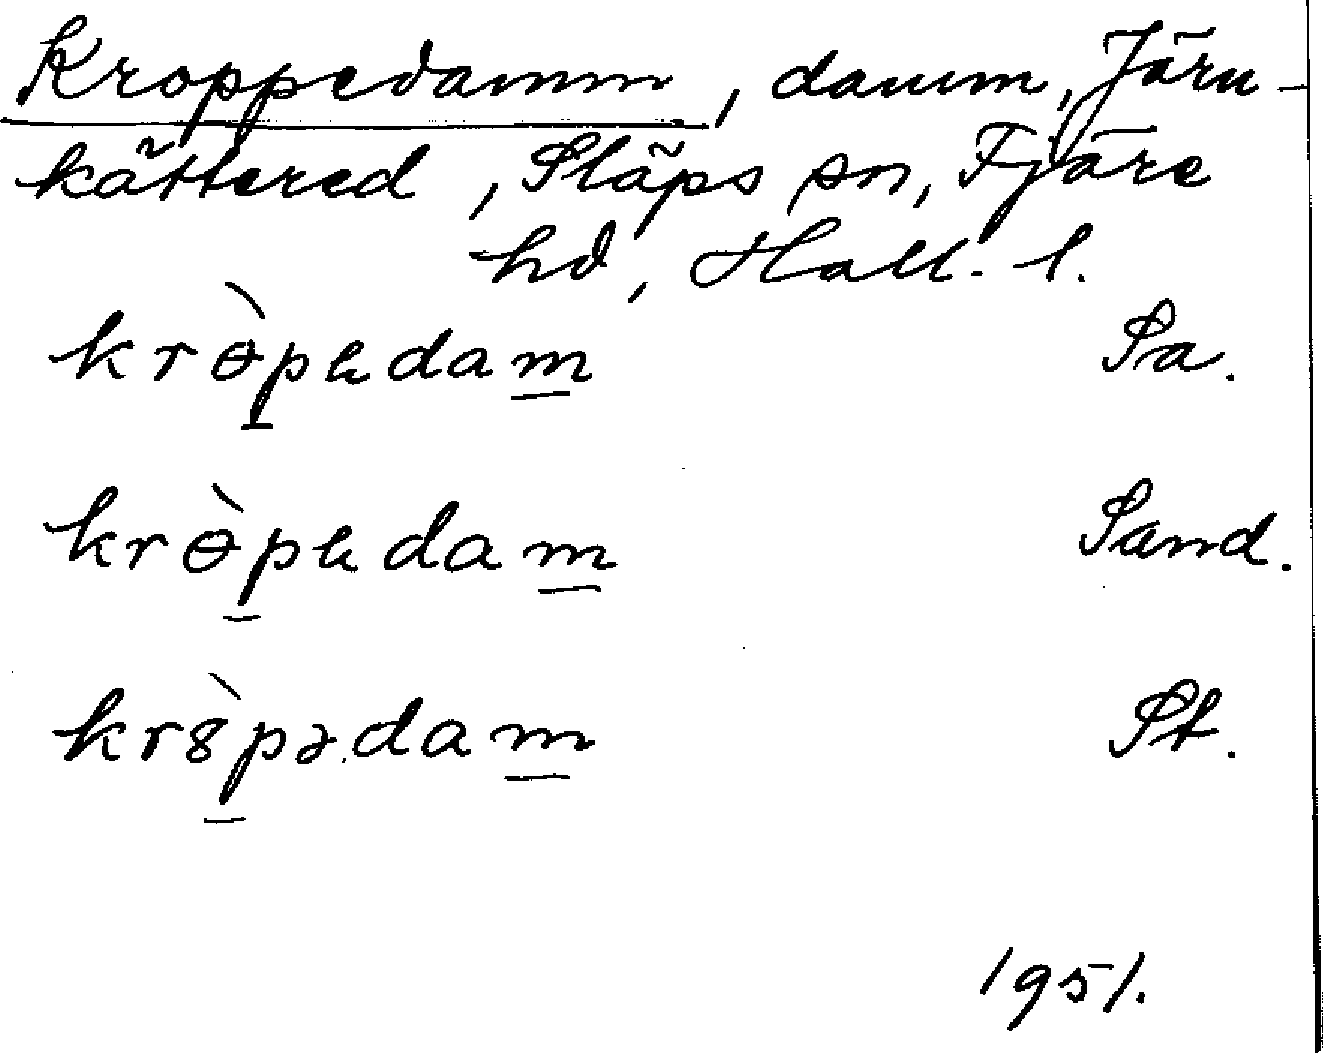 Kroppedamm, damm, Järn-
kättered, Släps sn, Fjäre
hd, Hall. l.
krɵ̀p̲ɐdam̲ Sa.
krɵ̀p̲ɐdam̲ Sand.
kr8̀p̲ədam̲ St.
1951.